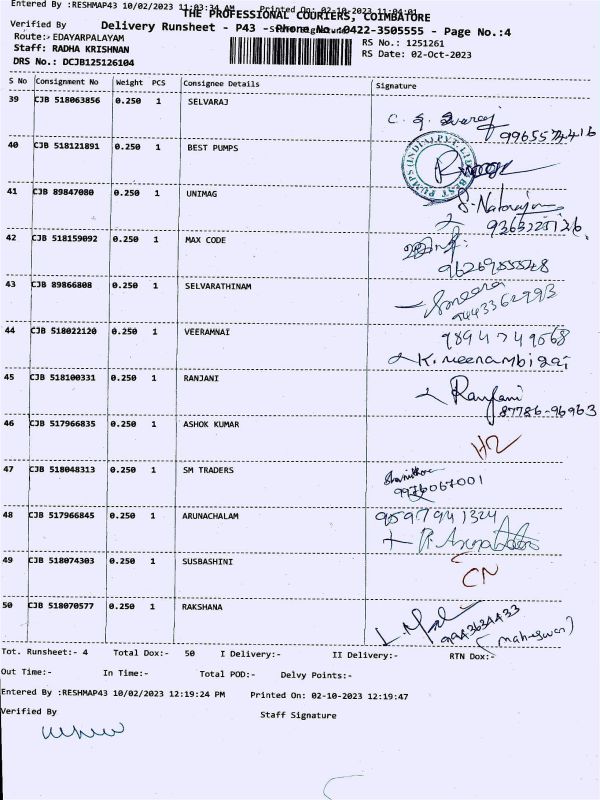 Entered By :RESHMAP43 10/02/2023 11:03:34 AM Printed On: 02-10-2023 11:04:01
THE PROFESSIONAL COURIERS, COIMBATORE
Verified By Delivery Runsheet - P43 - Phone No.:0422-3505555 - Page No.:4
Staff Signature
Route:- EDAYARPALAYAM RS No.: 1251261
Staff: RADHA KRISHNAN RS Date: 02-Oct-2023
DRS No.: DCJB125126104
S No Consignment No Weight PCS Consignee Details Signature
39 CJB 518063856 0.250 1 SELVARAJ
9965574416
40 CJB 518121891 0.250 1 BEST PUMPS
BEST PUMPS (INDIA) PVT. LTD.
41 CJB 89847080 0.250 1 UNIMAG S. Natarajan
42 CJB 518159092 0.250 1 MAX CODE
43 CJB 89866808 0.250 1 SELVARATHINAM
9443362993
44 CJB 518022120 0.250 1 VEERAMNAI 9894749568
K. meenambigai
45 CJB 518100331 0.250 1 RANJANI Ranjani
87786-96963
46 CJB 517966835 0.250 1 ASHOK KUMAR
47 CJB 518048313 0.250 1 SM TRADERS
48 CJB 517966845 0.250 1 ARUNACHALAM 9597941324
49 CJB 518074303 0.250 1 SUSBASHINI
CN
50 CJB 518070577 0.250 1 RAKSHANA
9943634433
(maheswari)
Tot. Runsheet:- 4 Total Dox:- 50 I Delivery:- II Delivery:- RTN Dox:-
Out Time:- In Time:- Total POD:- Delvy Points:-
Entered By :RESHMAP43 10/02/2023 12:19:24 PM Printed On: 02-10-2023 12:19:47
Verified By Staff Signature